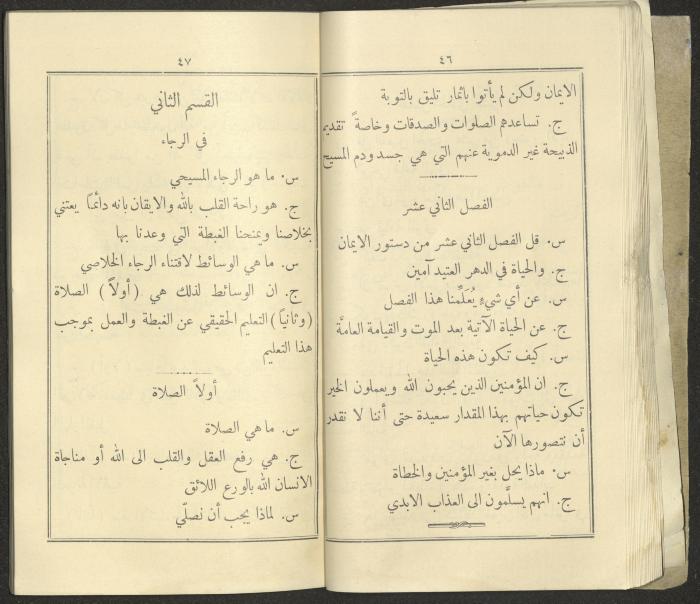 ٤٦
الايمان ولكن لم يأتوا باثمار تليق بالتوبة
ج. تساعدهم الصلوات والصدقات وخاصةً تقديم
الذبيحة غير الدموية عنهم التي هي جسد ودم المسيح
الفصل الثاني عشر
س. قل الفصل الثاني عشر من دستور الايمان
ج. والحياة في الدهر العتيد آمين
س. عن أي شيءٍ يُعَلِّمنا هذا الفصل
ج. عن الحياة الآتية بعد الموت والقيامة العامَّة
س. كيف تكون هذه الحياة
ج. ان المؤمنين الذين يحبون الله ويعملون الخير
تكون حياتهم بهذا المقدار سعيدة حتى أننا لا نقدر
أن نتصورها الآن
س. ماذا يحل بغير المؤمنين والخطاة
ج. انهم يسلَّمون الى العذاب الابدي
٤٧
القسم الثاني
في الرجاء
س. ما هو الرجاء المسيحي
ج. هو راحة القلب بالله والايقان بانه دائمًا يعتني
بخلاصنا ويمنحنا الغبطة التي وعدنا بها
س. ما هي الوسائط لاقتناء الرجاء الخلاصي
ج. ان الوسائط لذلك هي (أولاً) الصلاة
(وثانيًا) التعليم الحقيقي عن الغبطة والعمل بموجب
هذا التعليم
أولاً الصلاة
س. ما هي الصلاة
ج. هي رفع العقل والقلب الى الله أو مناجاة
الانسان الله بالورع اللائق
س. لماذا يجب أن نصلّي